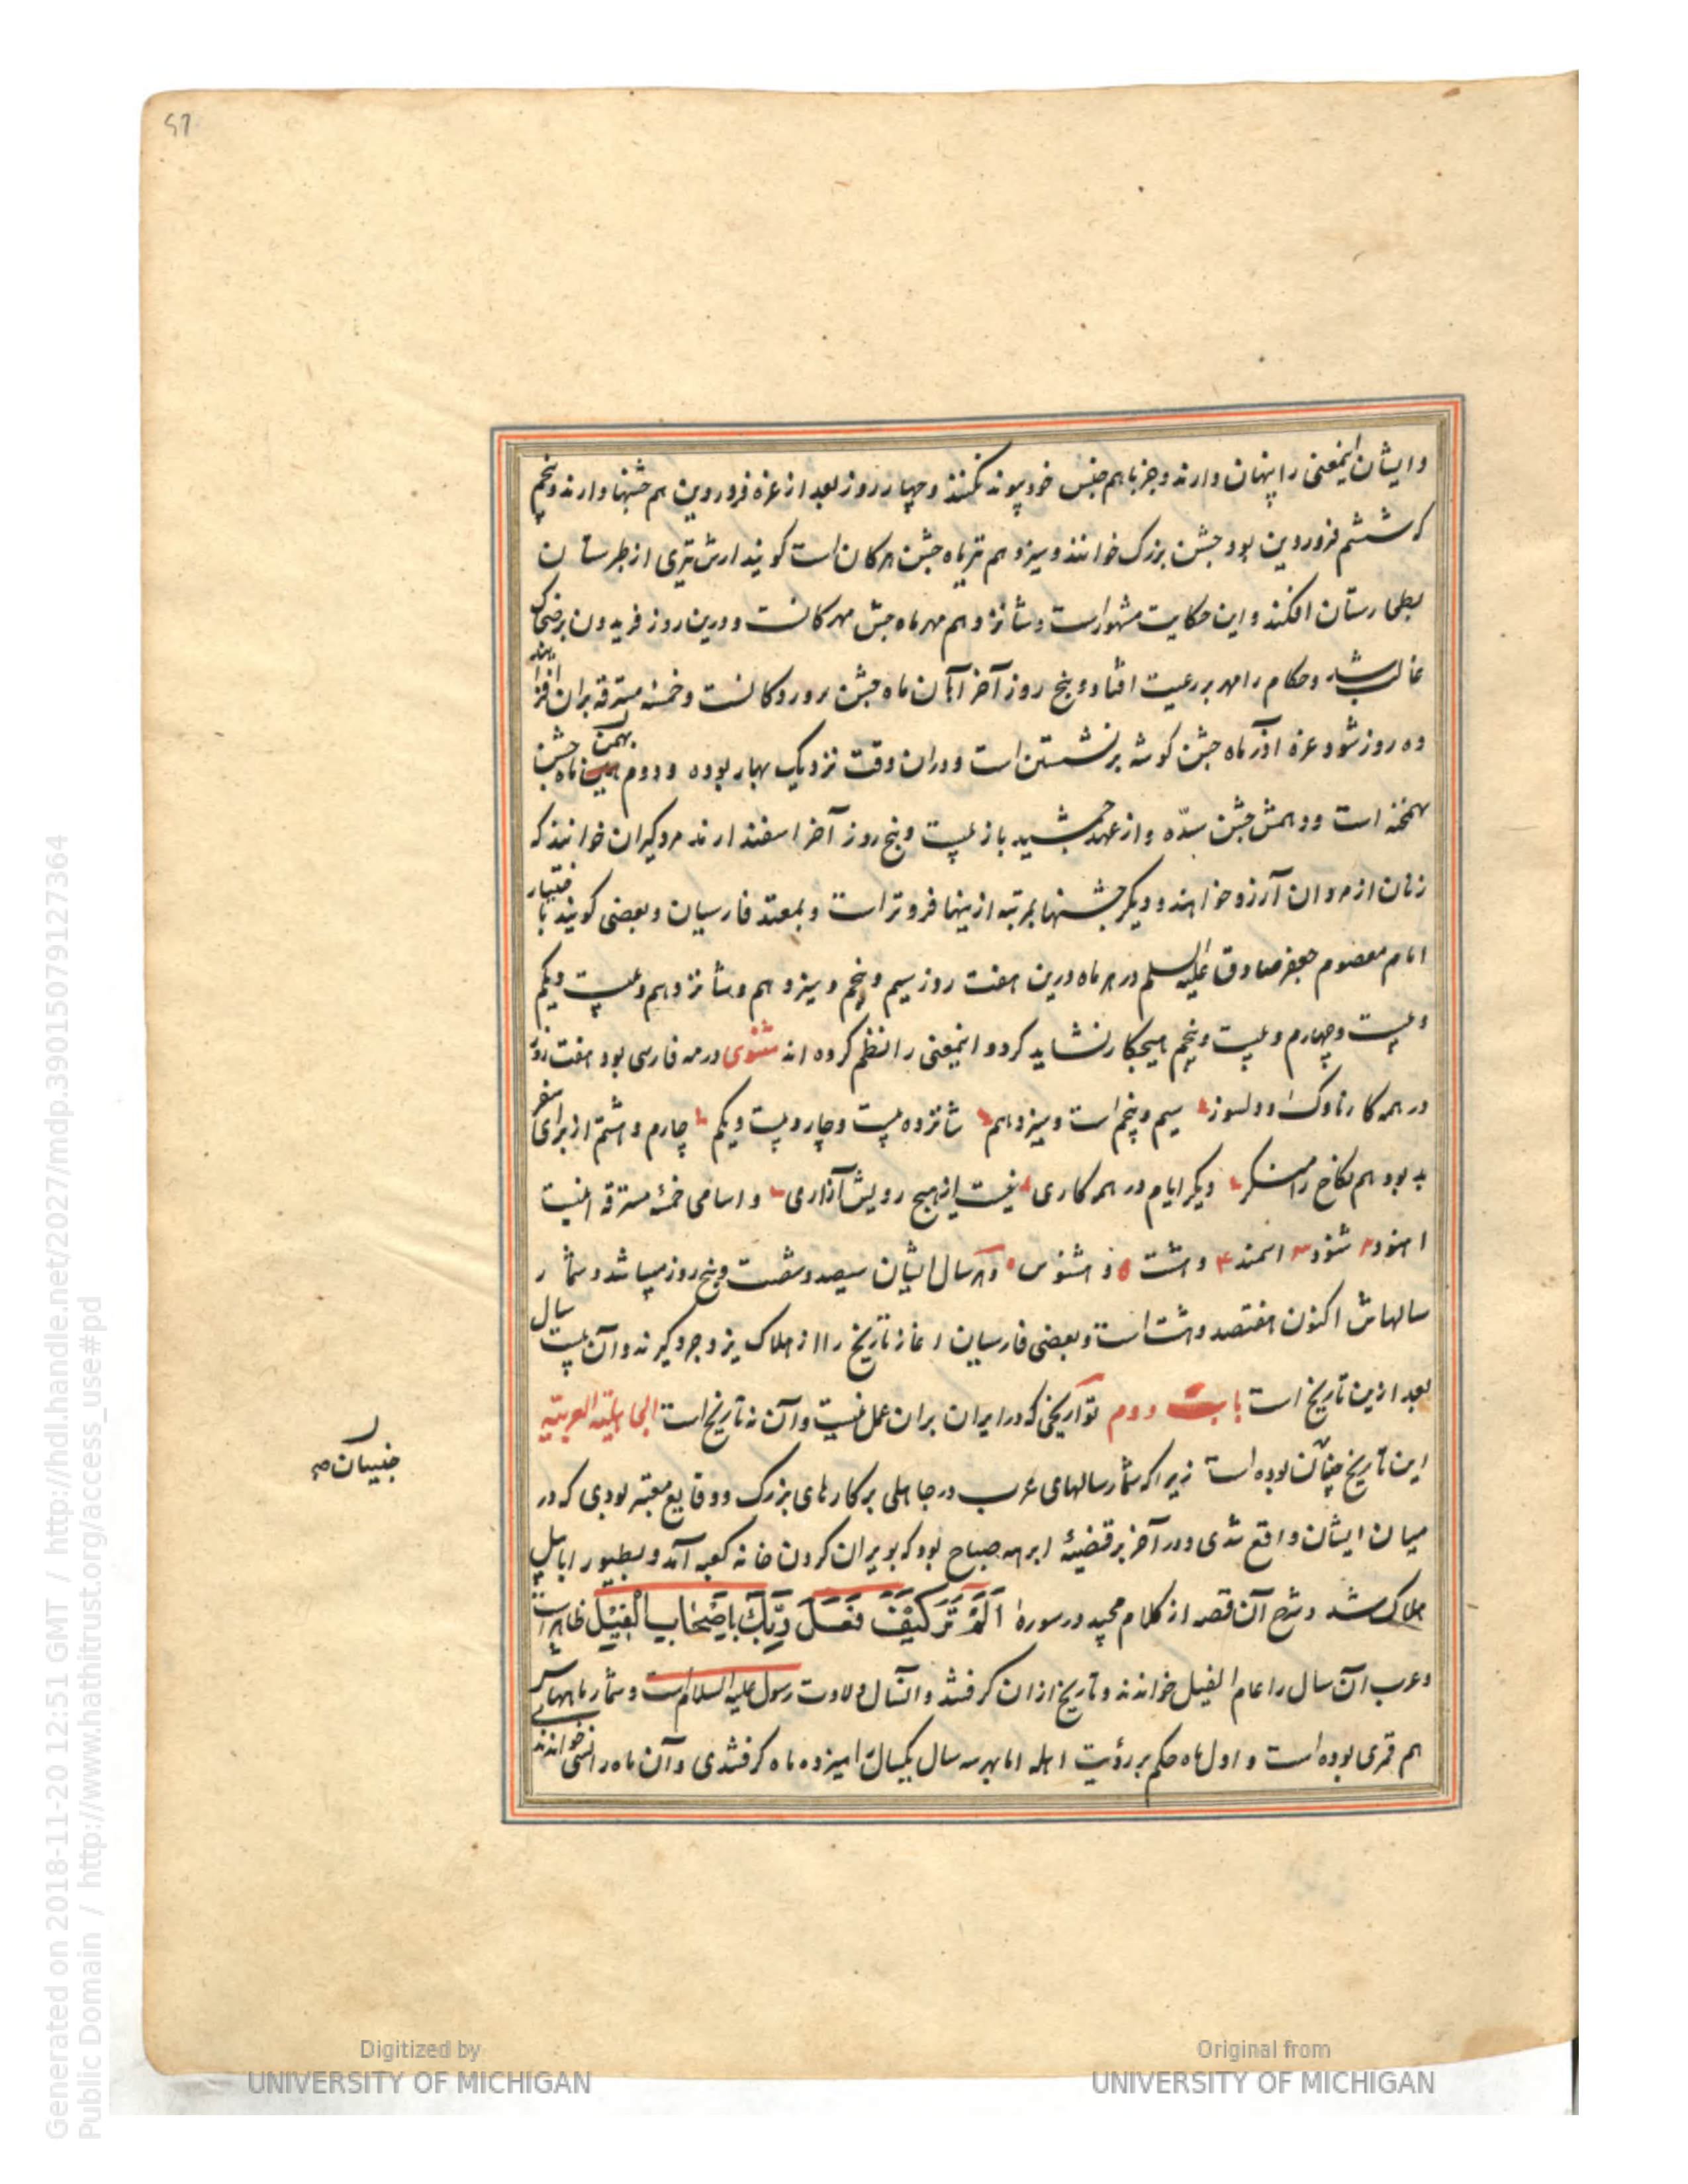 57
وایشان اینمعنی را پنهان دارند و جز با هم جنس خود پیوند نکنند و چهار روز بعد از غره فروردین هم جشنها دارند و پنجم
که ششم فروردین بود جشن بزرک خوانند و سیزدهم تیرماه جشن هرکان است کویند ارش تیری از طبرستان
بطخارستان افکند و این حکایت مشهورست و شانزدهم مهرماه جشن مهرکانست و درین روز فریدون برضحاک
غالب شد و حکام را مهر بر رعیت افتاد و پنج روز آخر آبان ماه جشن بروردکانست و خمسه مسترقه بران افزایند
ده روز شود غره اذر ماه جشن کوشه برنشستن است و دران وقت نزدیک بهار بوده و دوم بهمن ماه جشن
بهمنجنه است و دهمش جشن سدّه و از عهد جمشید باز بیست و پنج روز آخر اسفندارمد مردکیران خوانند که
زنان از مردان آرزو خواهند و دیکر جشنها بمرتبه ازینها فروتر است و بمعتقد فارسیان و بعضی کویند باختیار
امام معصوم جعفر صادق علیه السلم در هر ماه درین هفت روز سیم و پنجم و سیزدهم و شانزدهم و بیست ویکم
و بیست و چهارم و بیست و پنجم هیچکار نشاید کرد و اینمعنی را نظم کرده اند مثنوی در مه فارسی بود هفت روز
در همه کار ناوک دلسوز سیم و پنجم است و سیزدهم شانزده بیست و چار و بیست ویکم چارم و هشتم از برای سفر
بد بود هم نکاح را منکر دیکر ایام در همه کاری نیست از هیچ رو پشت آزاری و اسامی خمسه مسترقه اینست
اهنود ۲ شنود ۳ اسمند ۴ و هشت ۵ و هشنوس و هر سال ایشان سیصد و شصت و پنج روز میباشد و شمار
سالهاش اکنون هفتصد و هشت است و بعضی فارسیان اغاز تاریخ را از هلاک یزدجرد کیرند و آن بیست سال
بعد ازین تاریخ است باب دوم تواریخی که در ایران بران عمل نیست و آن نه تاریخ است الجاهلیة العربیه
این تاریخ چنان بوده است زیرا که شمار سالهای عرب در جاهلی بر کارهای بزرک و وقایع معتبر بودی که در
میان ایشان واقع شدی و در آخر بر قضیهٔ ابرهه صباح بود که بویران کردن خانه کعبه آمد و بطیور ابابیل
هلاک شد و شرح آن قصه از کلام مجید در سورهٔ اَلَمْ تَرَ كَيْفَ فَعَلَ رَبُّكَ بِاَصْحَابِ الْفِيْلِ ظاهر است
و عرب آن سال را عام الفیل خواندند و تاریخ ازان کرفتند و آنسال ولادت رسول علیه السلام است و شمار ماههاش
هم قمری بوده است و اول ماه حکم بر رؤیت اهله اما بهر سه سال یکسال را سیزده ماه کرفتندی و آن ماه را نسی خواندند
Generated on 2018-11-20 12:51 GMT / http://hdl.handle.net/2027/mdp.39015079127364
Public Domain / http://www.hathitrust.org/access_use#pd
Digitized by
UNIVERSITY OF MICHIGAN
Original from
UNIVERSITY OF MICHIGAN